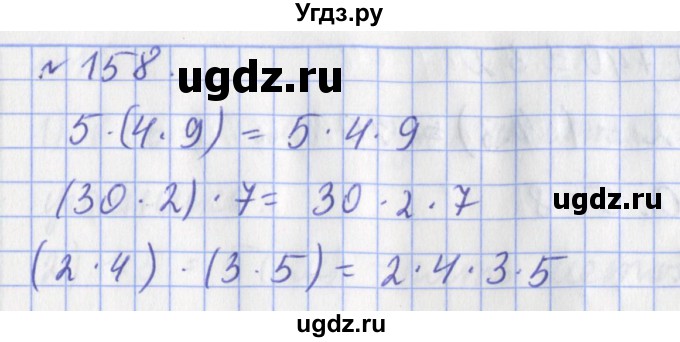 Угдз.ру
№ 158.
ugdz.ru
5 · (4 · 9) = 5 · 4 · 9
(30 · 2) · 7 = 30 · 2 · 7
ugdz.ru
(2 · 4) · (3 · 5) = 2 · 4 · 3 · 5
ugdz.ru